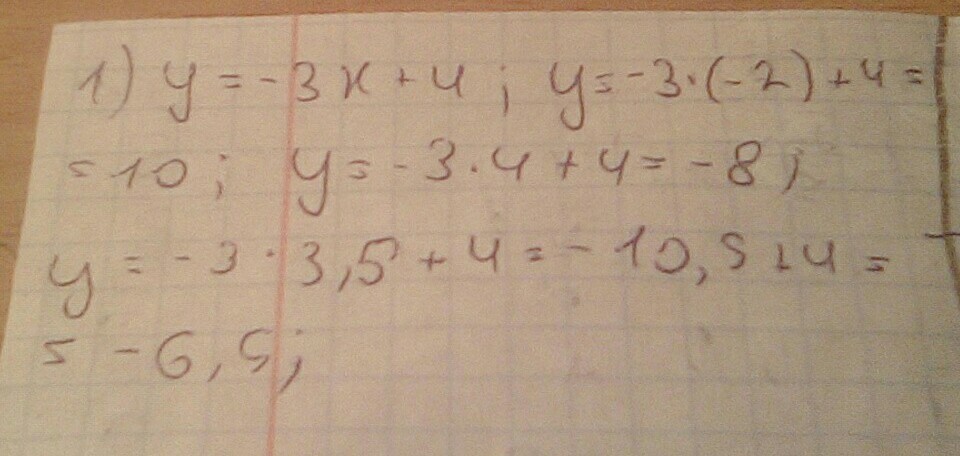 1) y = -3x + 4 ; y = -3·(-2) + 4 =
= 10 ; y = -3·4 + 4 = -8 ;
y = -3 · 3,5 + 4 = -10,5 + 4 =
= -6,5;